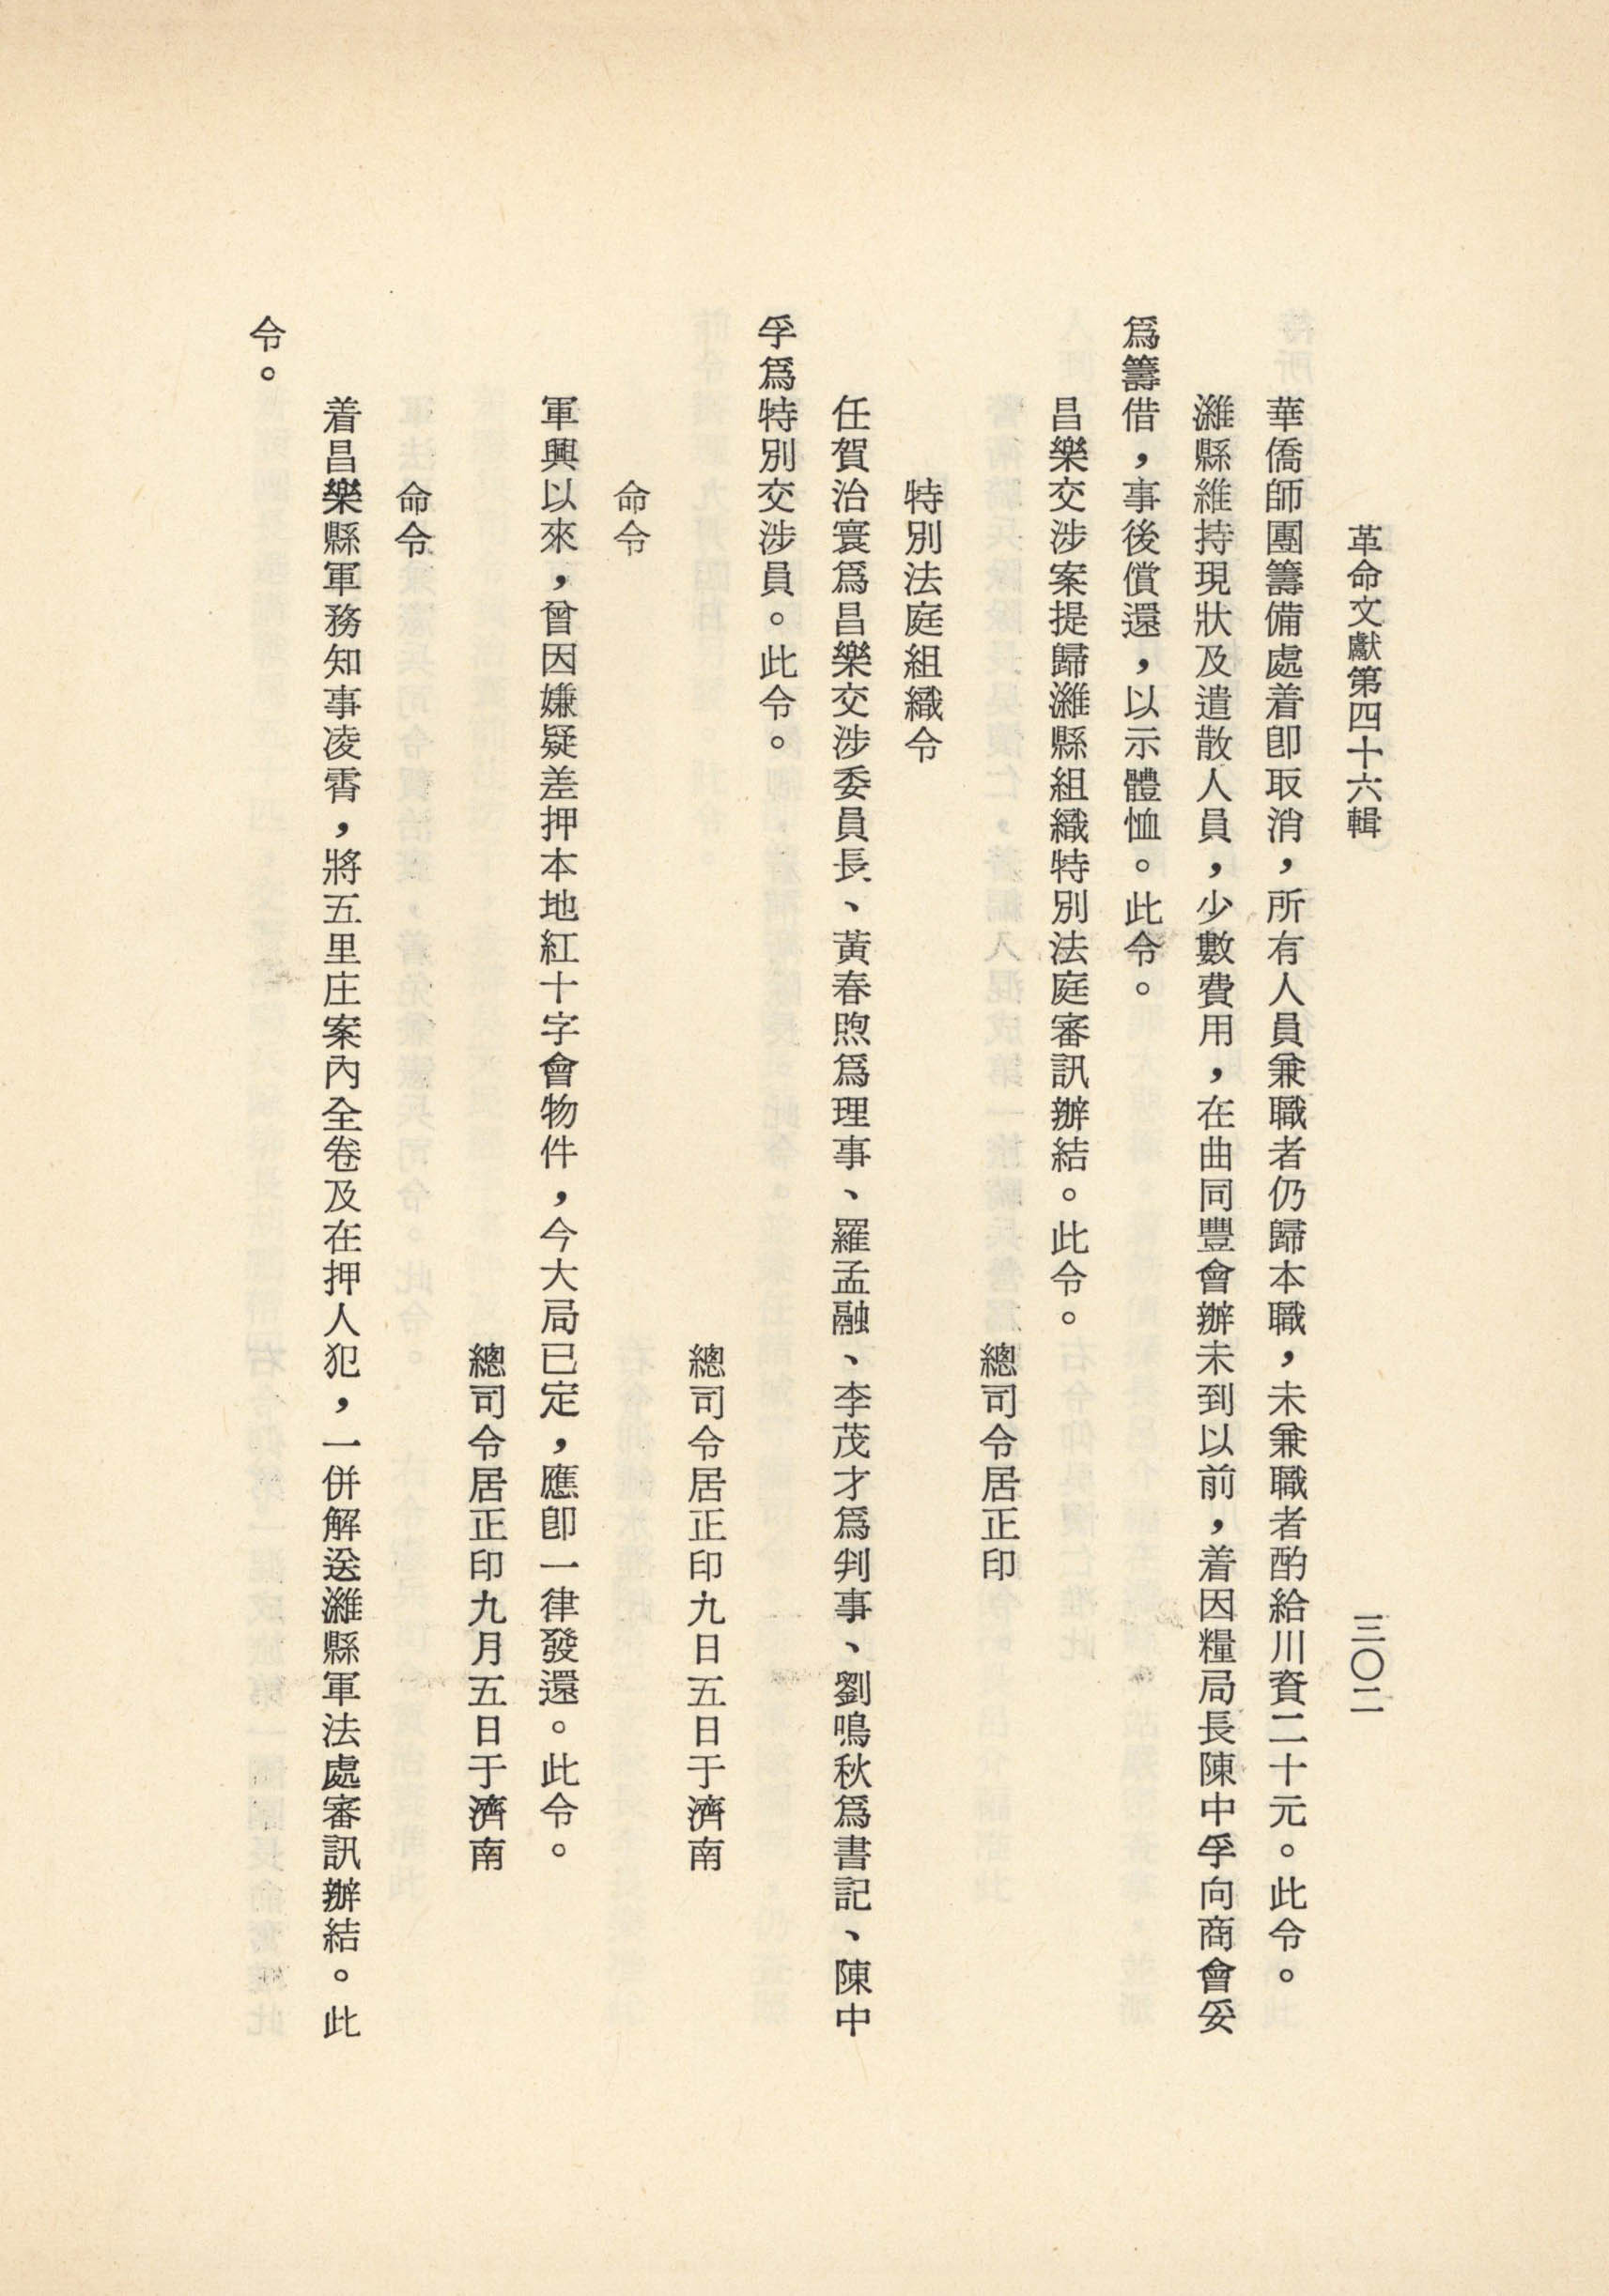 革命文獻第四十六輯
三〇二
華僑師團籌備處着卽取消，所有人員兼職者仍歸本職，未兼職者酌給川資二十元。此令。
濰縣維持現狀及遣散人員，少數費用，在曲同豐會辦未到以前，着因糧局長陳中孚向商會妥
爲籌借，事後償還，以示體恤。此令。
昌樂交涉案提歸濰縣組織特別法庭審訊辦結。此令。
總司令居正印
特別法庭組織令
任賀治寰爲昌樂交涉委員長、黃春煦爲理事、羅孟融、李茂才爲判事、劉鳴秋爲書記、陳中
孚爲特別交涉員。此令。
總司令居正印九日五日于濟南
命令
軍興以來，曾因嫌疑差押本地紅十字會物件，今大局已定，應卽一律發還。此令。
總司令居正印九月五日于濟南
命令
着昌樂縣軍務知事凌霄，將五里庄案內全卷及在押人犯，一併解送濰縣軍法處審訊辦結。此
令。